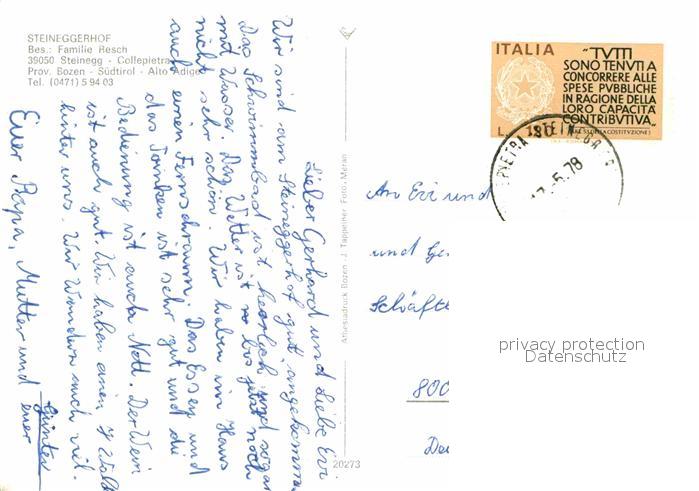 STEINEGGERHOF
Bes.: Familie Resch
39050 Steinegg - Collepietra
Prov. Bozen - Südtirol - Alto Adige
Tel. (0471) 5 94 03
Lieber Gerhard und Liebe Evi.
Wir sind am Steineggerhof gut angekommen
Das Schwimmbad ist herrlich und sogar
mit Wasser. Das Wetter ist bis jetzt noch
nicht sehr schön. Wir haben im Haus
auch einen Fernsehraum. Das Essen und
das Trinken ist sehr gut und die
Bedienung ist auch Nett. Der Wein
ist auch gut. Wir haben einen Wald
hinter uns. Wir Wandern auch viel.
Euer Papa, Mutter und euer
Günter
Athesiadruck Bozen - J. Tappeiner Foto, Meran
20273
ITALIA
"TVTTI
SONO TENVTI A
CONCORRERE ALLE
SPESE PVBBLICHE
IN RAGIONE DELLA
LORO CAPACITÀ
CONTRIBVTIVA"
(ART. 53 DELLA COSTITVZIONE)
-5.78
An Evi und
und Ge
Schäftl
800
privacy protection
Datenschutz